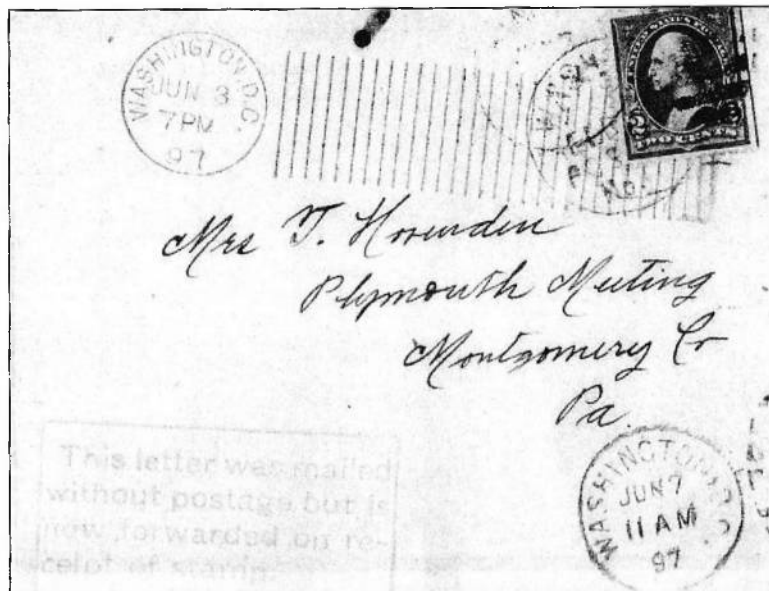 WASHINGTON, D.C.
JUN 3
7 PM
97
UNITED STATES
2 2
TWO CENTS
MD.
Mrs T. Hovenden
Plymouth Meeting
Montgomery Co
Pa.
This letter was mailed
without postage but is
now forwarded on re-
ceipt of stamp.
WASHINGTON, D.C.
JUN 7
11 AM
97